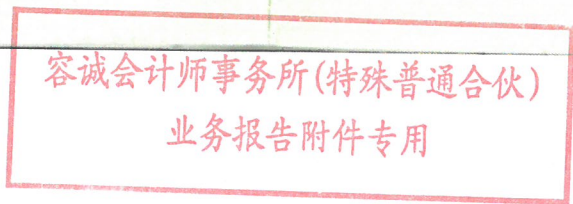 容诚会计师事务所(特殊普通合伙)
业务报告附件专用